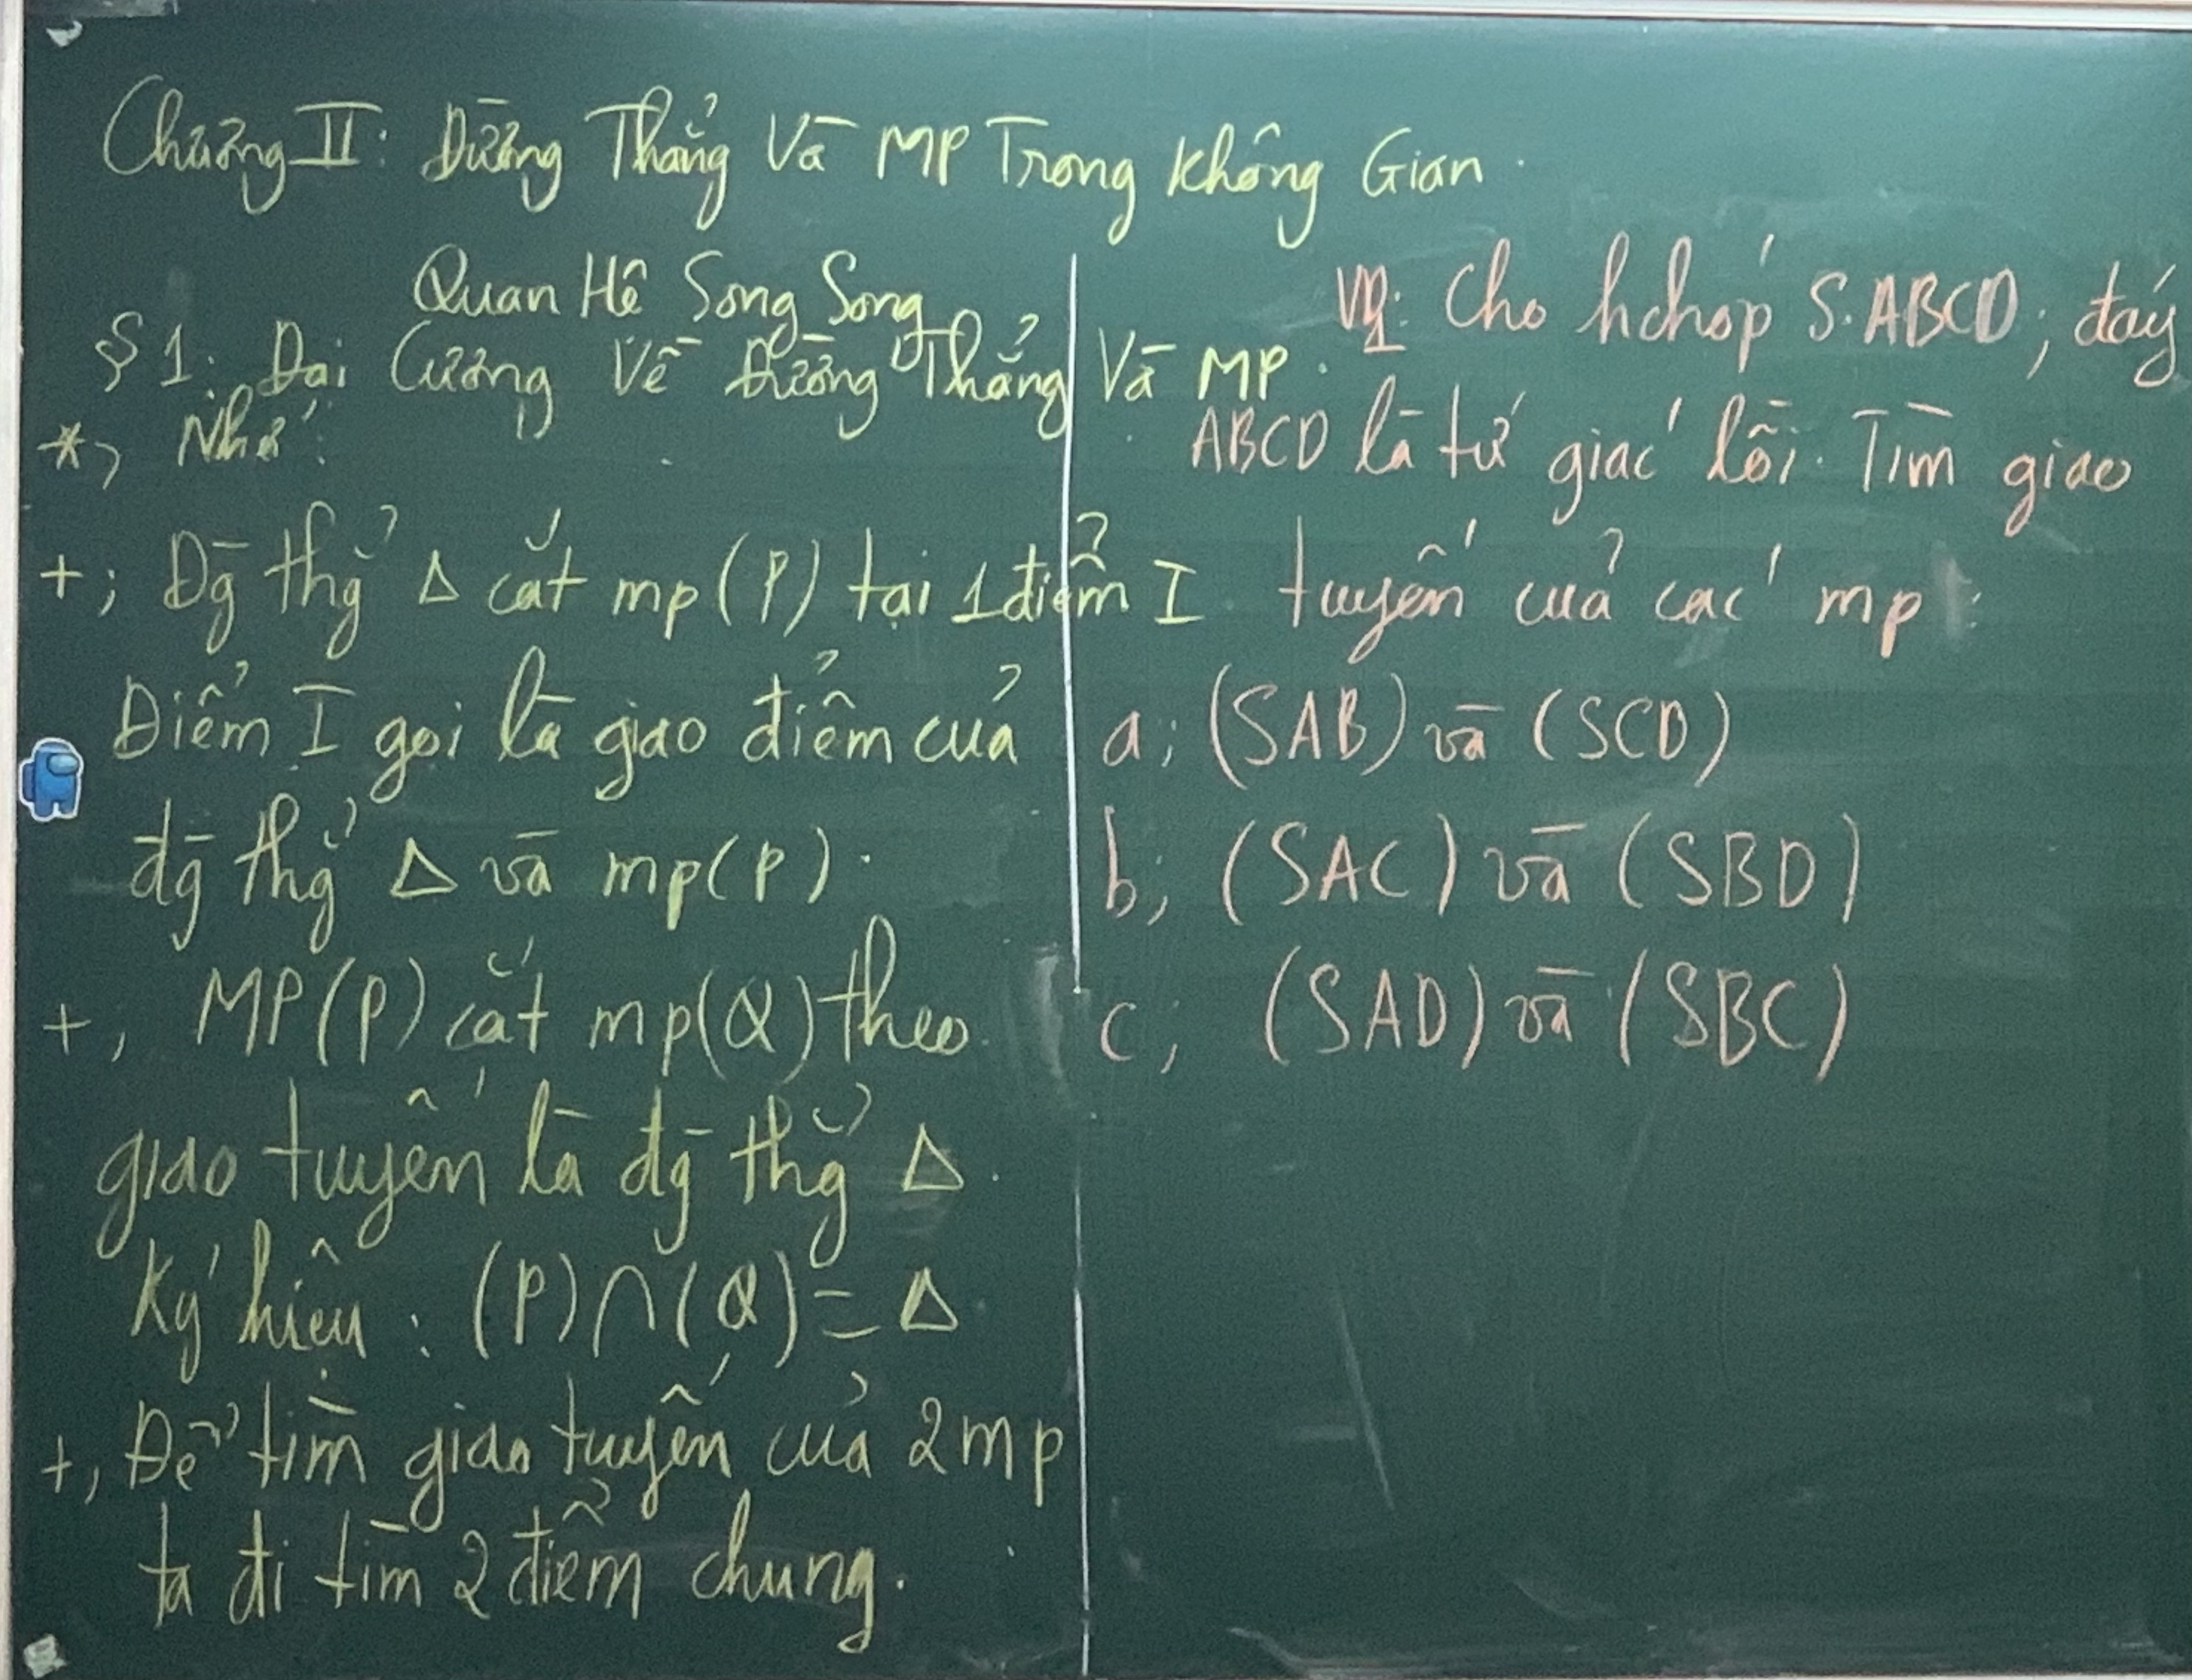 Chương II: Đường Thẳng Và MP Trong Không Gian.
Quan Hệ Song Song
§1: Đại Cương Về Đường Thẳng Và MP.
*, Nhớ:
+; Đg̀ thg̉ Δ cắt mp(P) tại 1 điểm I
Điểm I gọi là giao điểm của
đg̀ thg̉ Δ và mp(P).
+, MP(P) cắt mp(Q) theo
giao tuyến là đg̀ thg̉ Δ.
Ký hiệu: (P)∩(Q)=Δ
+, Để tìm giao tuyến của 2mp
ta đi tìm 2 điểm chung.
VD1: Cho hchóp S.ABCD; đáy
ABCD là tứ giác lồi. Tìm giao
tuyến của các mp:
a; (SAB) và (SCD)
b; (SAC) và (SBD)
c; (SAD) và (SBC)